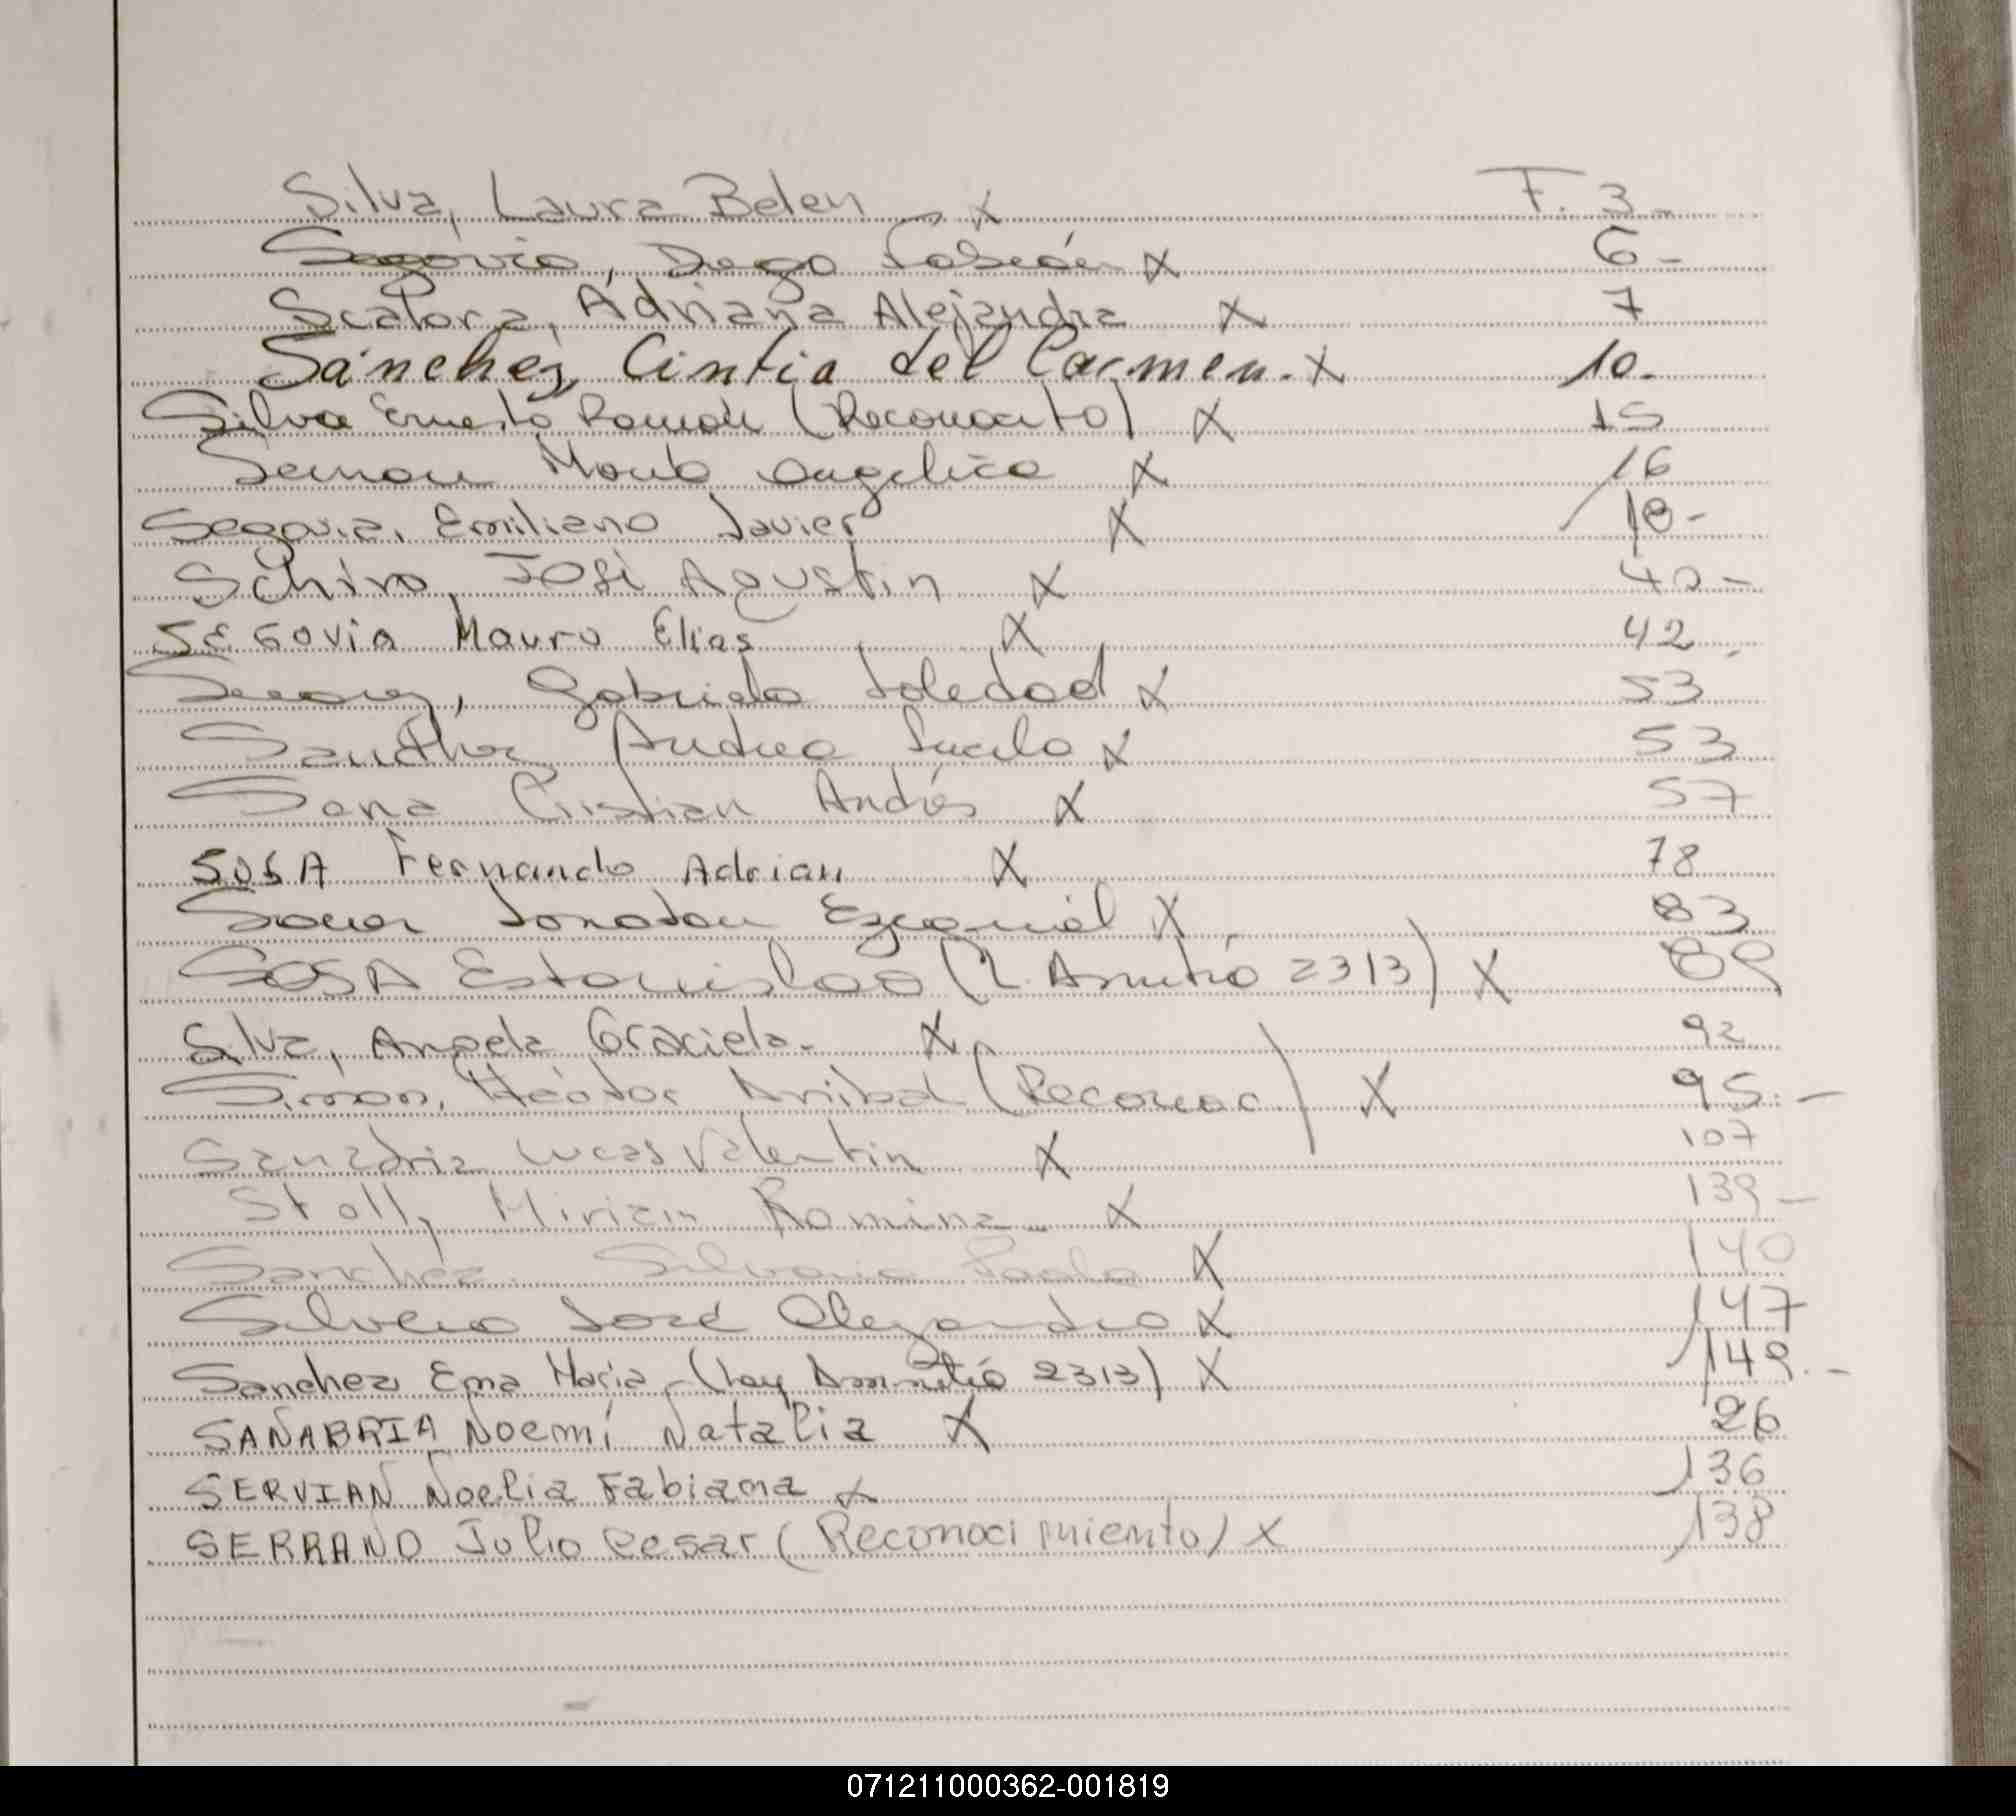 Silva, Laura Belen X F. 3-
Segovia, Diego Fabián X 6-
Scatora, Adriana Alejandra X 7
Sánchez, Cintia del Carmen. X 10.
Silva Ernesto Ramon (Reconocito) X 15
Angelica X 16
Segovia, Emiliano Javier X 18-
Schiro, José Agustin X 42-
SEGOVIA Mauro Elias X 42
Gabriela Soledad X 53
Andrea X 53
Cristian Andrés X 57
SOSA Fernando Adrian X 78
Jonatan Ezequiel X 83
SOSA Estanislao (L. Amnitió 2313) X 89
Silva, Angela Graciela. X 92
Simon, Héctor Anibal (Reconoc) X 95.-
Sanabria Lucas Valentin X 107
Stoll, Miriam Romina X 139-
Sanchez Silvana Paola X 140
Silvero José Alejandro X 147
Sanchez Ema Maria (Ley Amnitió 2313) X 149.-
SANABRIA Noemí Natalia X 26
SERVIAN Noelia Fabiana X 136
SERRANO Julio Cesar (Reconocimiento) X 138
071211000362-001819